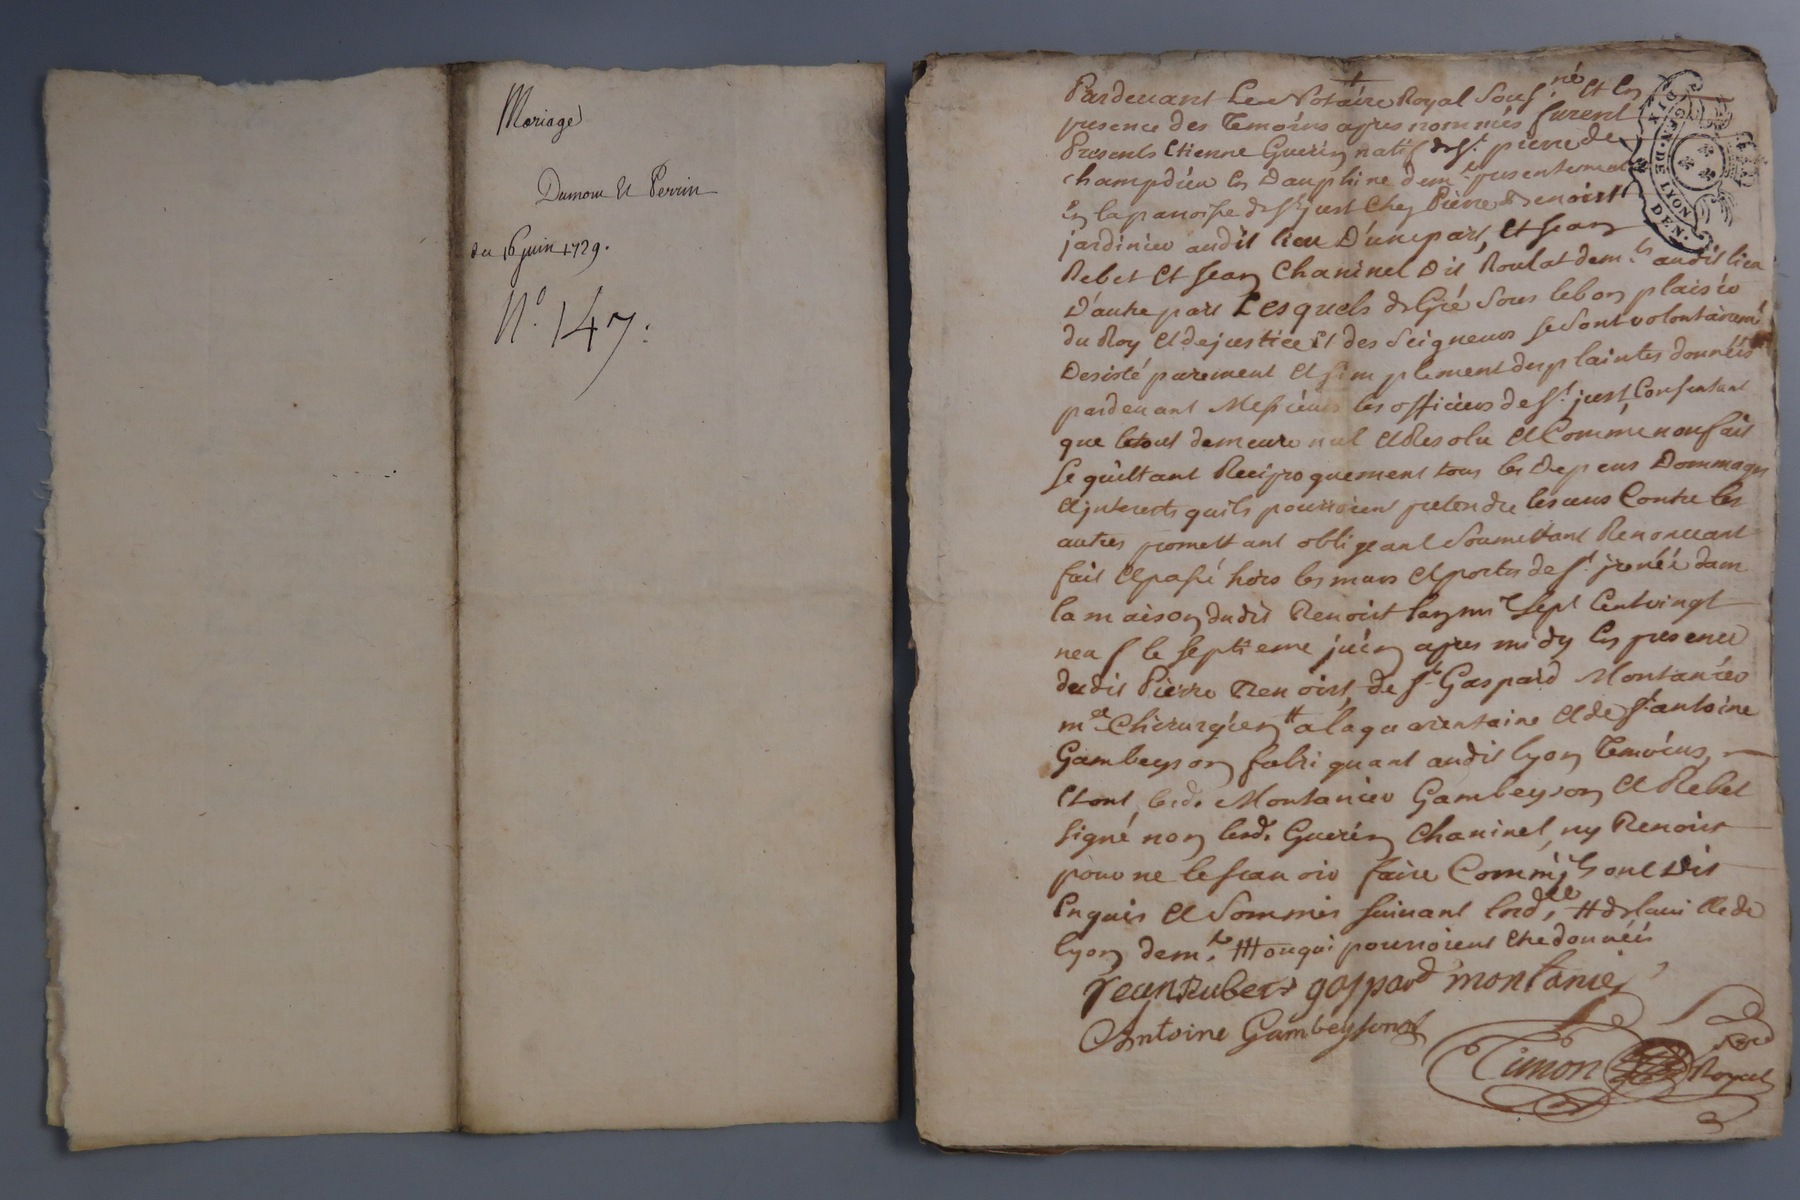 Mariage
Dumont Et Perrin
du 16 juin 1729.
N.º 147.
Pardevant Le Notaire Royal Sousné Et En
presence des Temoins apres nommés furent
Presents Etienne Guerin natif de St. pierre de
champdieu En Dauphiné demt. presentement
En la paroisse de St. just Chez Pierre Benoist
jardinier audit lieu D'une part, Et Jean
Rebet Et Jean Chaninel Dit Roulat demts. audit lieu
D'autre part Lesquels de Gré Sous le bon plaisir
du Roy Et de justice Et des Seigneurs Se Sont volontairemt
Desisté purement Et Simplement des plaintes données
pardevant Messieurs les officiers de St. just, Consentant
que le tout demeure nul Et Resolu Et Comme non fait
Se quittant Reciproquement tous les Depens Dommages
Et jnterests quils pourroient pretendre les uns Contre les
autres promettant obligeant Soumettant Renoncant
fait Et passé hors les murs Et portes de St. jrenéé dans
la maison dudit Benoist lan mil Sept Cent vingt
neuf le Septieme juin apres midy En presence
dudit Pierre Benoist, de Sr. Gaspard Montanier
me Chirurgien # a la quarentaine Et de Sr. antoine
Gambeyson fabriquant audit lyon Temoins,
Et ont lesd. Montanier Gambeyson Et Rebet
Signé non lesd. Guerin Chaninel, ny Benoist
pour ne le scavoir faire Comm'jls ont Dit
Enquis Et Sommés Suivant lordce, # de la ville de
lyon demt. ## ou qui pourroient Etre donnéés
Jean Rubet gaspard montanier
Antoine Gambeyson
Timon Royal
GEN. DE LYON